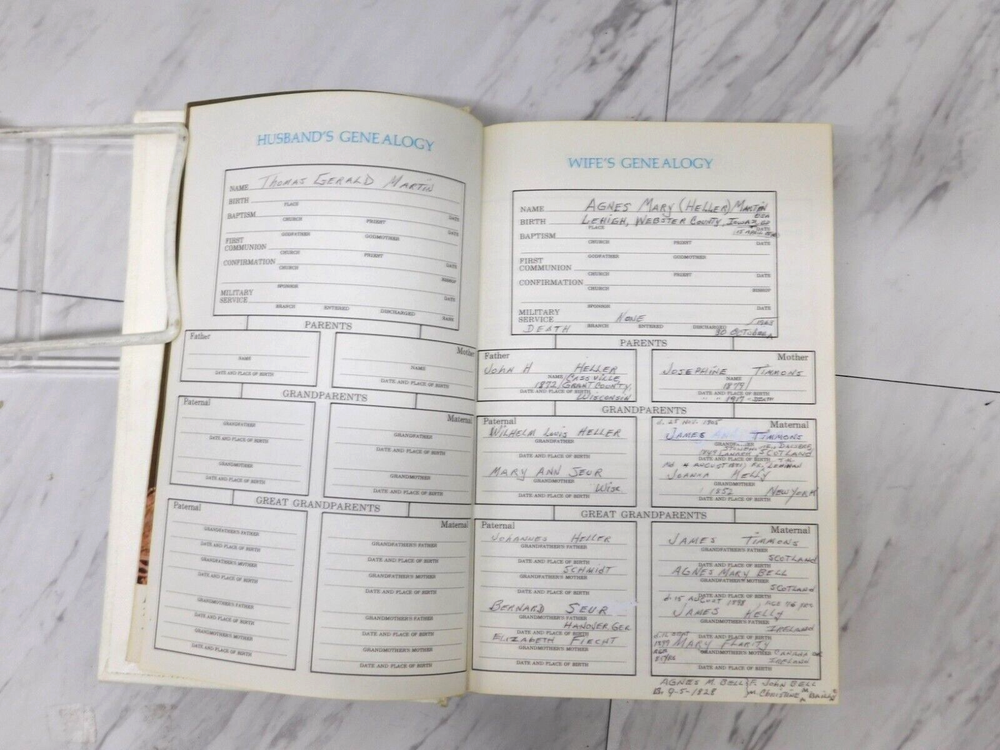 HUSBAND'S GENEALOGY
NAME THOMAS GERALD MARTIN
BIRTH
PLACE
BAPTISM DATE
CHURCH PRIEST DATE
GODFATHER GODMOTHER
FIRST
COMMUNION
CHURCH PRIEST DATE
CONFIRMATION
CHURCH BISHOP
SPONSOR DATE
MILITARY
SERVICE
BRANCH ENTERED DISCHARGED RANK
PARENTS
Father Mother
NAME NAME
DATE AND PLACE OF BIRTH DATE AND PLACE OF BIRTH
GRANDPARENTS
Paternal Maternal
GRANDFATHER GRANDFATHER
DATE AND PLACE OF BIRTH DATE AND PLACE OF BIRTH
GRANDMOTHER GRANDMOTHER
DATE AND PLACE OF BIRTH DATE AND PLACE OF BIRTH
GREAT GRANDPARENTS
Paternal Maternal
GRANDFATHER'S FATHER GRANDFATHER'S FATHER
DATE AND PLACE OF BIRTH DATE AND PLACE OF BIRTH
GRANDFATHER'S MOTHER GRANDFATHER'S MOTHER
DATE AND PLACE OF BIRTH DATE AND PLACE OF BIRTH
GRANDMOTHER'S FATHER GRANDMOTHER'S FATHER
DATE AND PLACE OF BIRTH DATE AND PLACE OF BIRTH
GRANDMOTHER'S MOTHER GRANDMOTHER'S MOTHER
DATE AND PLACE OF BIRTH DATE AND PLACE OF BIRTH
WIFE'S GENEALOGY
NAME AGNES MARY (HELLER) MARTIN
BIRTH LEHIGH, WEBSTER COUNTY, IOWA
PLACE DATE
BAPTISM
CHURCH PRIEST DATE
GODFATHER GODMOTHER
FIRST
COMMUNION
CHURCH PRIEST DATE
CONFIRMATION
CHURCH BISHOP
SPONSOR DATE
MILITARY
SERVICE NONE
DEATH BRANCH ENTERED DISCHARGED 30 OCTOBER
PARENTS
Father Mother
JOHN H HELLER JOSEPHINE TIMMONS
NAME CASSVILLE NAME
1872/GRANT COUNTY, 1879/
DATE AND PLACE OF BIRTH DATE AND PLACE OF BIRTH
WISCONSIN
GRANDPARENTS
Paternal Maternal
WILHELM LOUIS HELLER JAMES TIMMONS
GRANDFATHER
DATE AND PLACE OF BIRTH SCOTLAND
MARY ANN SEUR JOANIA KELLY
GRANDMOTHER GRANDMOTHER
WISC 1852 NEW YORK
DATE AND PLACE OF BIRTH DATE AND PLACE OF BIRTH
GREAT GRANDPARENTS
Paternal Maternal
JOHANNES HELLER JAMES TIMMONS
GRANDFATHER'S FATHER GRANDFATHER'S FATHER
SCOTLAND
DATE AND PLACE OF BIRTH DATE AND PLACE OF BIRTH
SCHMIDT AGNES MARY BELL
GRANDFATHER'S MOTHER GRANDFATHER'S MOTHER
SCOTLAND
DATE AND PLACE OF BIRTH DATE AND PLACE OF BIRTH
d 15 AUGUST 1898
BERNARD SEUR JAMES KELLY
GRANDMOTHER'S FATHER GRANDMOTHER'S FATHER
HANOVER GER IRELAND
DATE AND PLACE OF BIRTH DATE AND PLACE OF BIRTH
ELIZABETH FIECHT MARY
GRANDMOTHER'S MOTHER GRANDMOTHER'S MOTHER CANADA OR
IRELAND
DATE AND PLACE OF BIRTH DATE AND PLACE OF BIRTH
AGNES M. BELL F. JOHN BELL
B. 9-5-1828 M. CHRISTINE